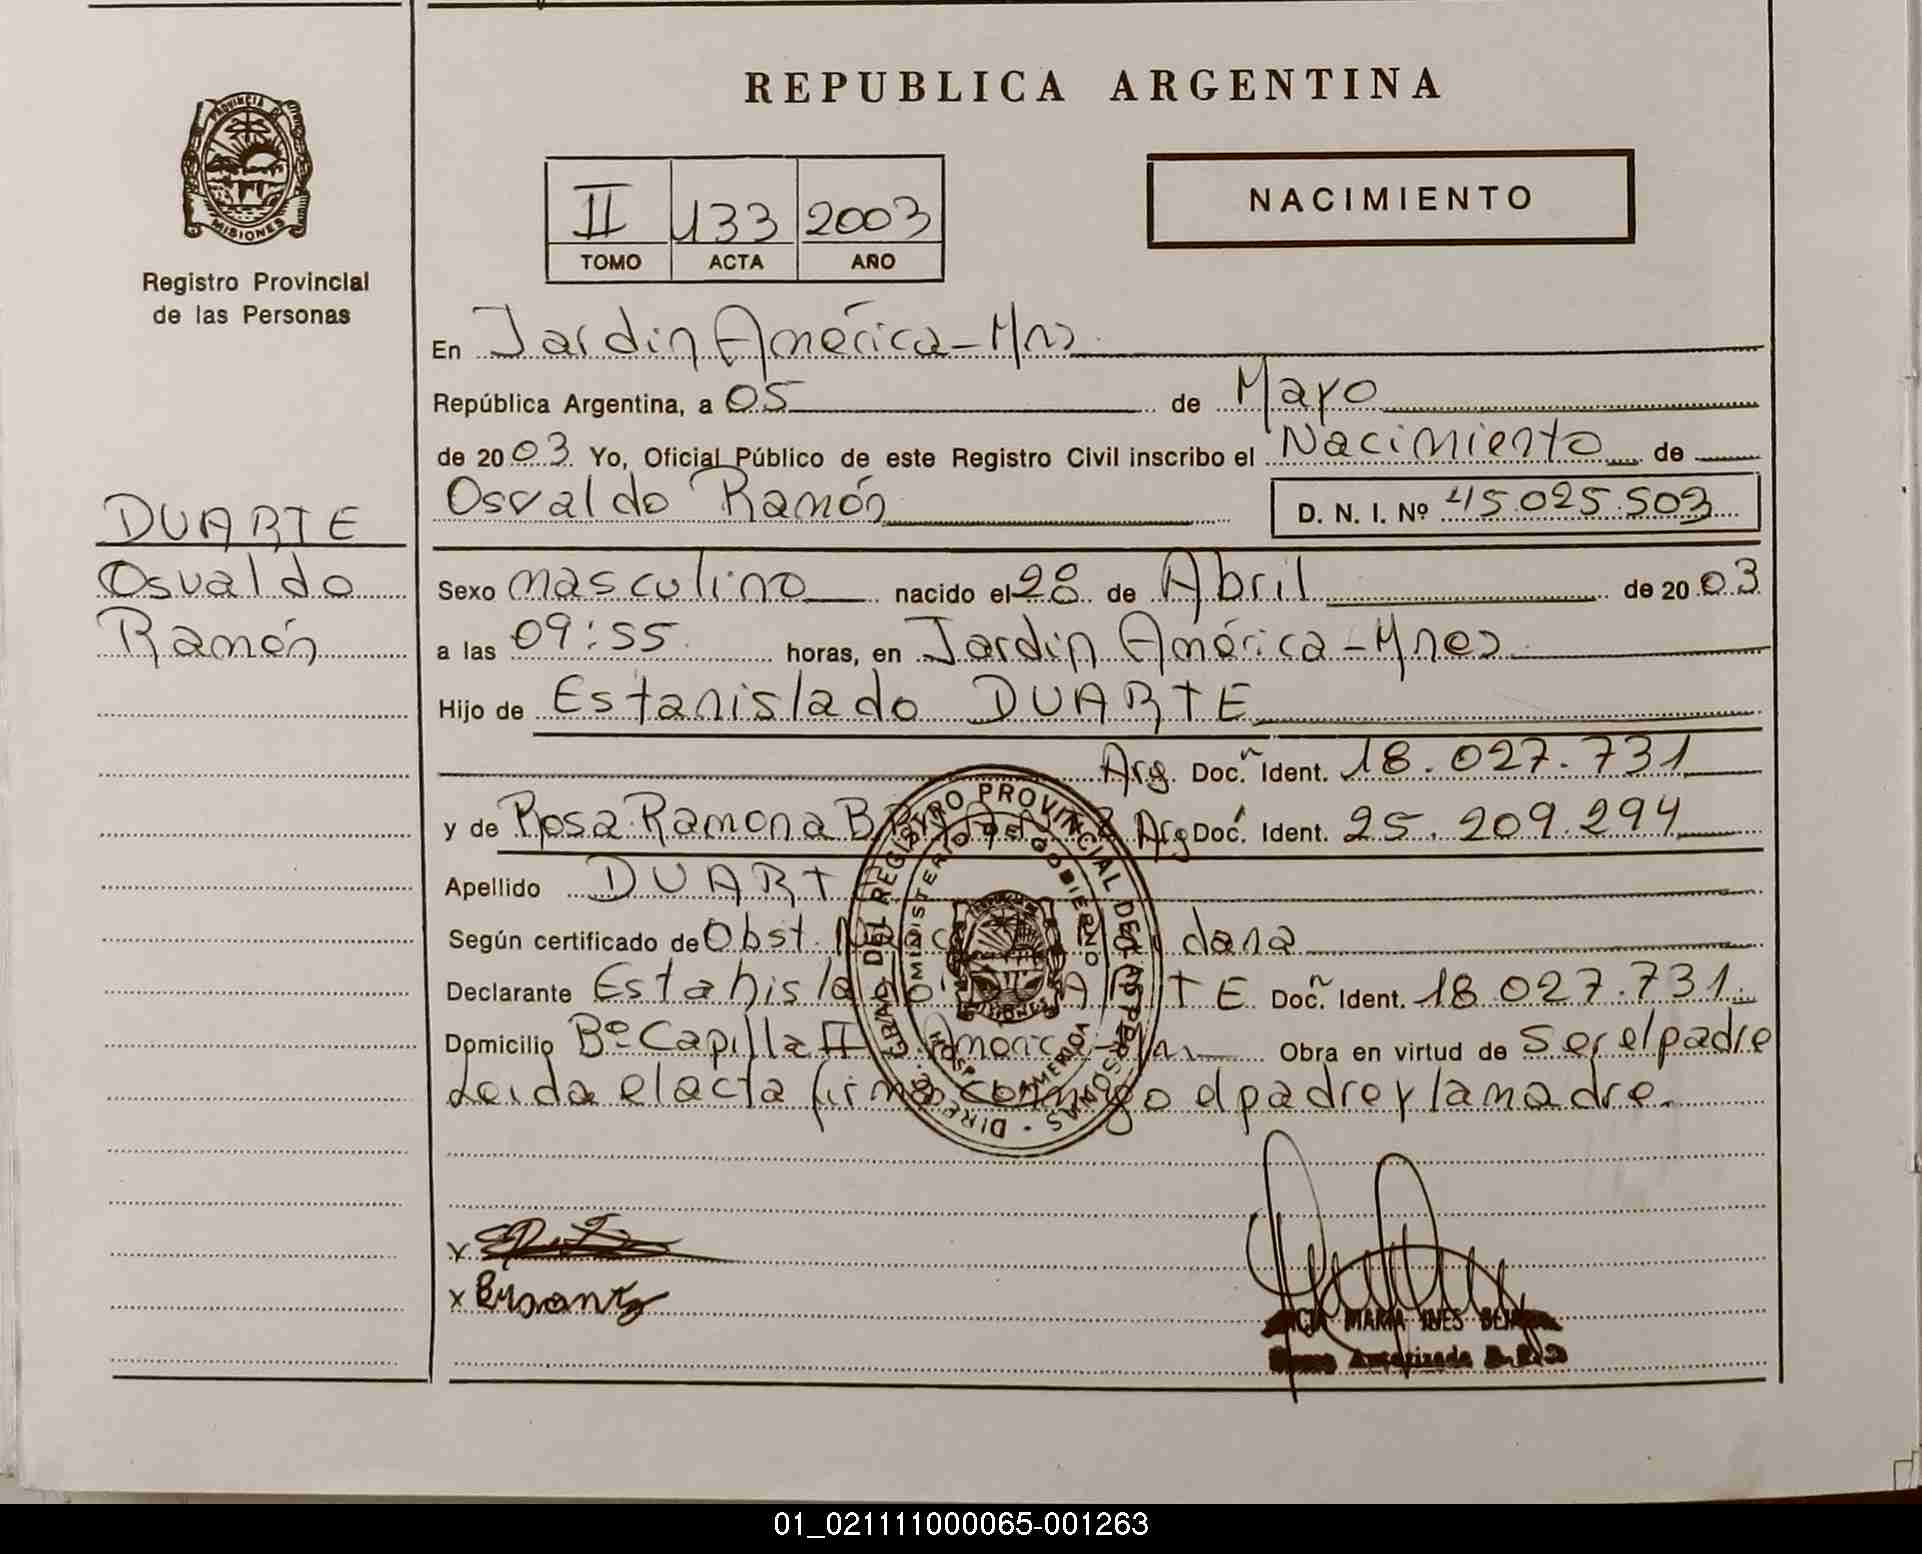 REPUBLICA ARGENTINA
PROVINCIA DE
MISIONES
Registro Provincial
de las Personas
II 133 2003
TOMO ACTA AÑO
NACIMIENTO
En Jardín América - Mns
República Argentina, a 05 de Mayo
de 2003 Yo, Oficial Público de este Registro Civil inscribo el Nacimiento de
Osvaldo Ramón D. N. I. Nº 45.025.503
DUARTE
Osvaldo
Ramón
Sexo masculino nacido el 28 de Abril de 2003
a las 09:55 horas, en Jardín América - Mnes
Hijo de Estanislado DUARTE
Arg. Doc. Ident. 18.027.731
y de Rosa Ramona Arg Doc. Ident. 25.209.294
Apellido DUART
Según certificado de Obst. dana
Declarante Estanislado DUARTE Doc. Ident. 18.027.731
Domicilio Bº Capilla II América Obra en virtud de ser el padre
Leida el acta firma conmigo el padre y la madre.
DIREC. GRAL. DEL REGISTRO PROVINCIAL DE LAS PERSONAS
MINISTERIO DE GOBIERNO
MISIONES
AMERICA
x
x
MARIA INES
Autorizada
01_021111000065-001263